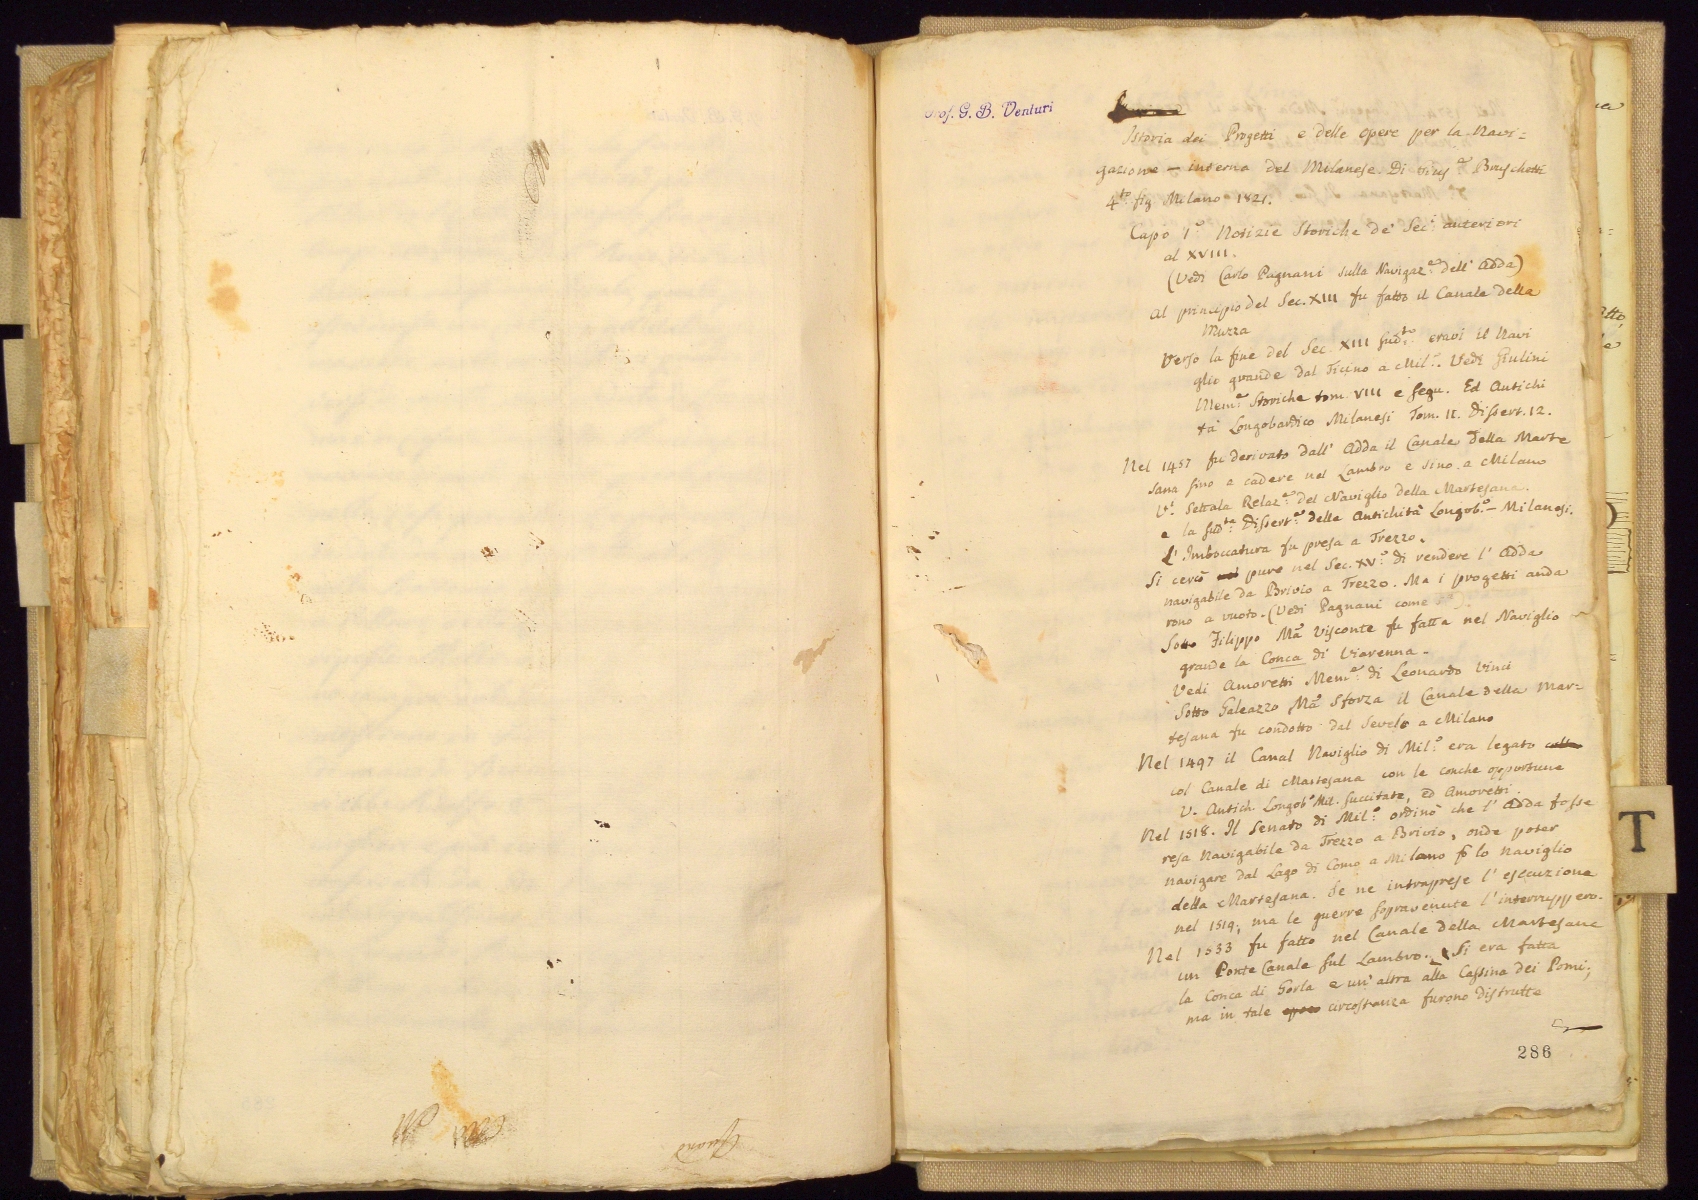 Prof. G. B. Venturi
Istoria dei Progetti e delle opere per la Navi=
gazione – interna del Milanese. Di Gius.e Bruschetti
4.to fig Milano 1821.
Capo 1.o Notizie Storiche de' Sec.i anteriori
al XVIII.
(Vedi Carlo Pagnani sulla Navigaz.e dell' Adda)
Al principio del Sec. XIII fu fatto il Canale della
Muzza
Verso la fine del Sec. XIII sud.to eravi il Navi
glio grande dal Ticino a Mil.o. Vedi Giulini
Mem.e Storiche tom. VIII e segu. Ed Antichi
tà Longobardico Milanesi Tom. II. Dissert. 12.
Nel 1457 fu derivato dall' Adda il Canale della Marte
sana sino a cadere nel Lambro e sino a Milano
V.i Settala Relaz.e del Naviglio della Martesana.
e la sud.ta Dissert.e delle Antichità Longob.o – Milanesi.
L' Imboccatura fu presa a Trezzo.
Si cercò pure nel Sec. XV.o di rendere l' Adda
navigabile da Brivio a Trezzo. Ma i progetti anda
rono a vuoto. (Vedi Pagnani come
Sotto Filippo M.a Visconte fu fatta nel Naviglio
grande la Conca di Viarenna.
Vedi Amoretti Mem.e di Leonardo Vinci
Sotto Galeazzo M.a Sforza il Canale della Mar=
tesana fu condotto dal Seveso a Milano
Nel 1497 il Canal Naviglio di Mil.o era legato
col Canale di Martesana con le conche opportune
V. Antich. Longob.o Mil. succitate, ed Amoretti.
Nel 1518. Il Senato di Mil.o ordinò che l' Adda fosse
resa Navigabile da Trezzo a Brivio, onde poter
navigare dal Lago di Como a Milano p lo Naviglio
della Martesana. Se ne intraprese l' esecuzione
nel 1519, ma le guerre sopravenute l' interruppero.
Nel 1533 fu fatto nel Canale della Martesana
un Ponte Canale sul Lambro. Si era fatta
la Conca di Gorla e un' altra alla Cassina dei Pomi,
ma in tale circostanza furono distrutte
286
T